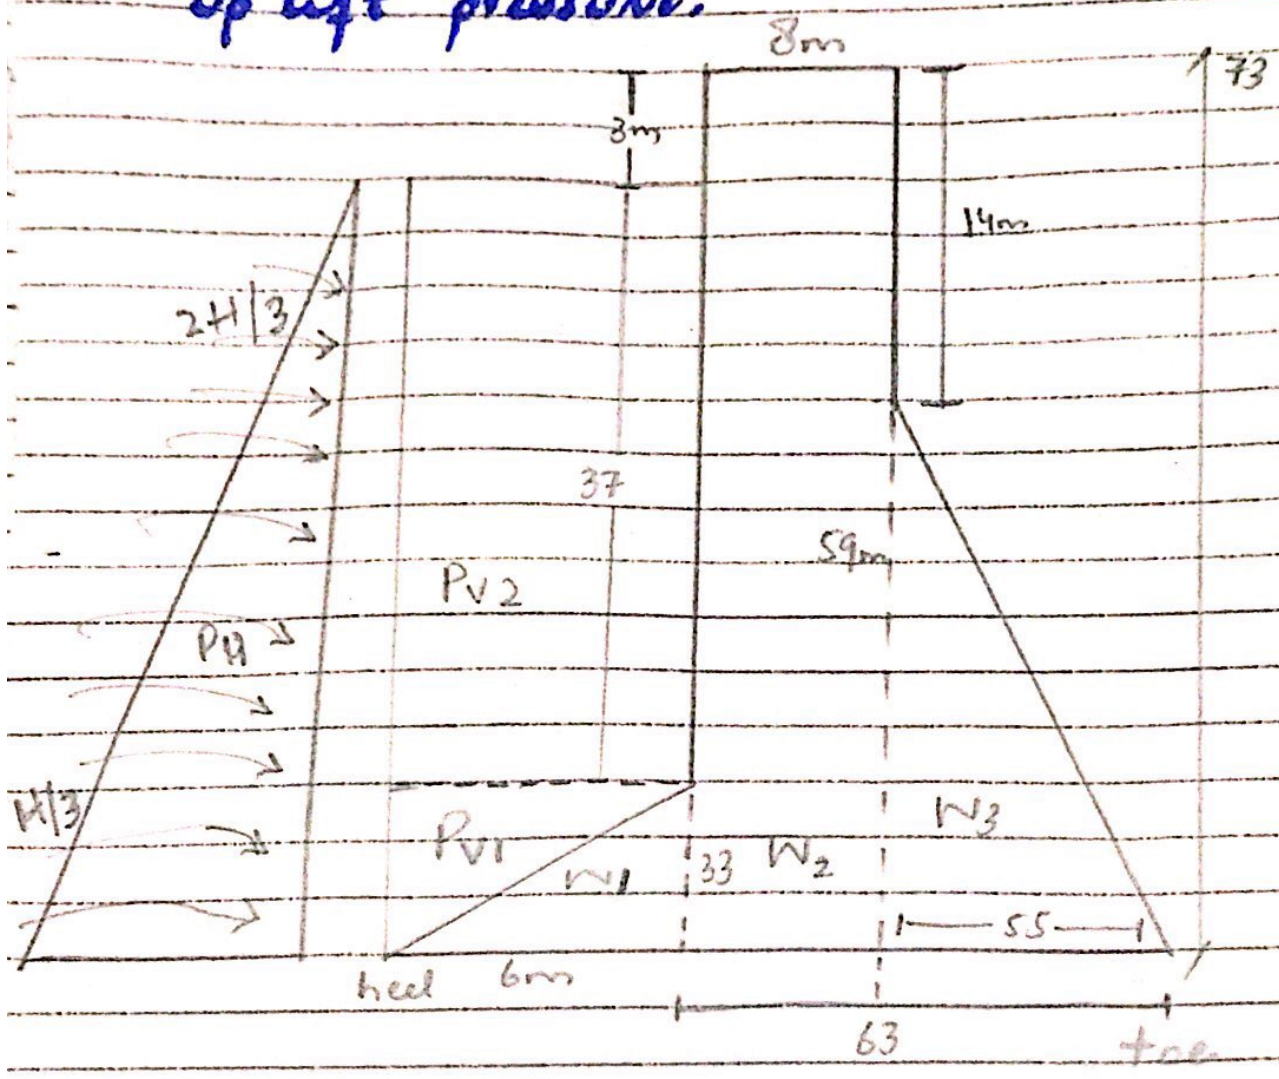 up lift pressure.
8m
73
3m
14m
2H/3
37
59m
Pv2
PH
H/3
Pv1
W1
33
W2
W3
55
heel
6m
63
toe